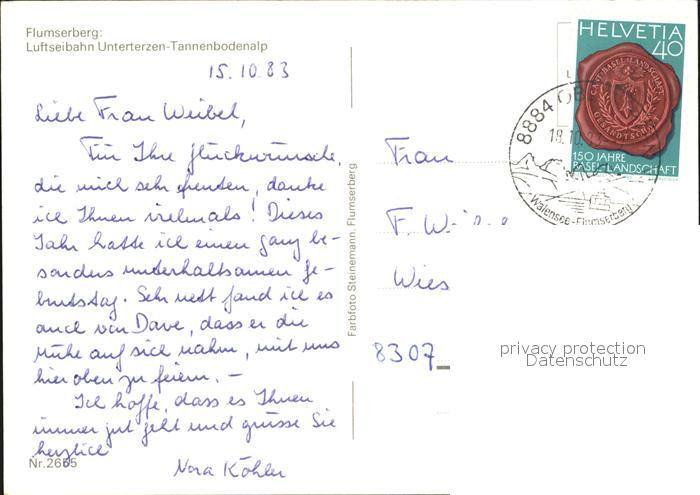 Flumserberg:
Luftseilbahn Unterterzen-Tannenbodenalp
15.10.83
Liebe Frau Weibel,
Für Ihre Glückwünsche,
die mich sehr freuten, danke
ich Ihnen vielmals! Dieses
Jahr hatte ich einen ganz be-
sonders unterhaltsamen Ge-
burtstag. Sehr nett fand ich es
auch von Dave, dass er die
Mühe auf sich nahm, mit uns
hier oben zu feiern. –
Ich hoffe, dass es Ihnen
immer gut geht und grüsse Sie
herzlich
Nora Köhler
Nr. 2665
Farbfoto Steinemann, Flumserberg
Frau
F. W
Wies
8307
HELVETIA
40
CANT. BASEL-LANDSCHAFT
GESANDTSCHAFT
150 JAHRE
BASEL-LANDSCHAFT
8884 OB
18.10.
Walensee-Flumserberg
privacy protection
Datenschutz